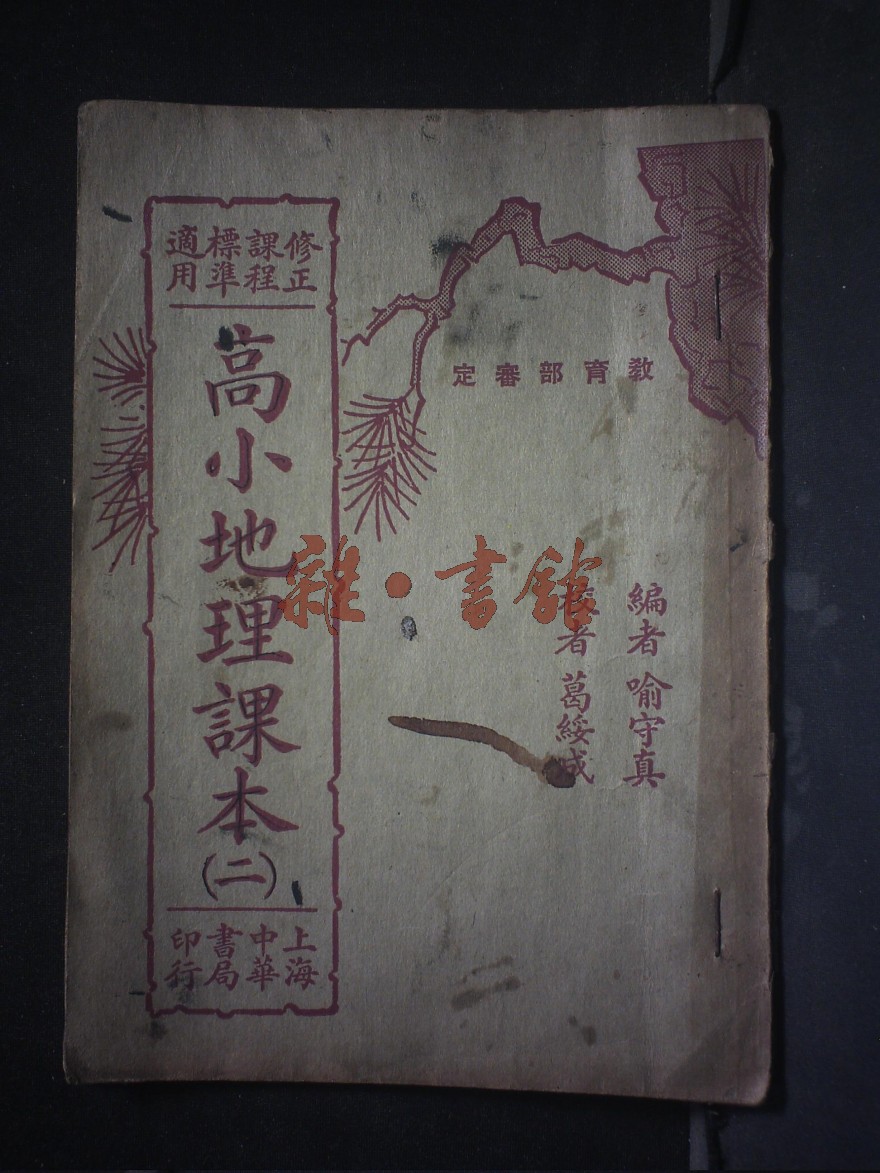 教育部審定
編者 喻守真
者 葛綏成
修正
課程
標準
適用
高小地理課本(二)
上海
中華
書局
印行
雜·書館